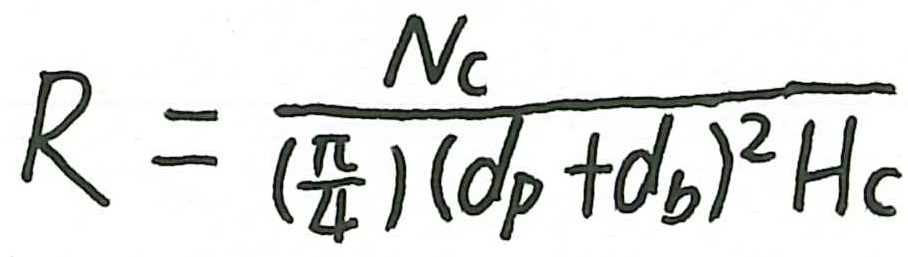 R = \frac{N_c}{(\frac{\pi}{4})(d_p + d_b)^2 H_c}